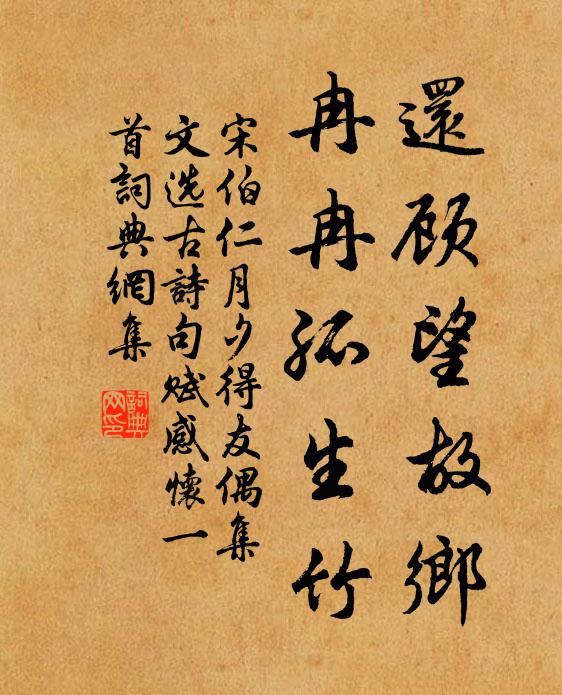 還顾望故鄉
冉冉孤生竹
宋伯仁月夕得友偶集
文选古詩句赋感懷一
首詞典網集
詞典
网印